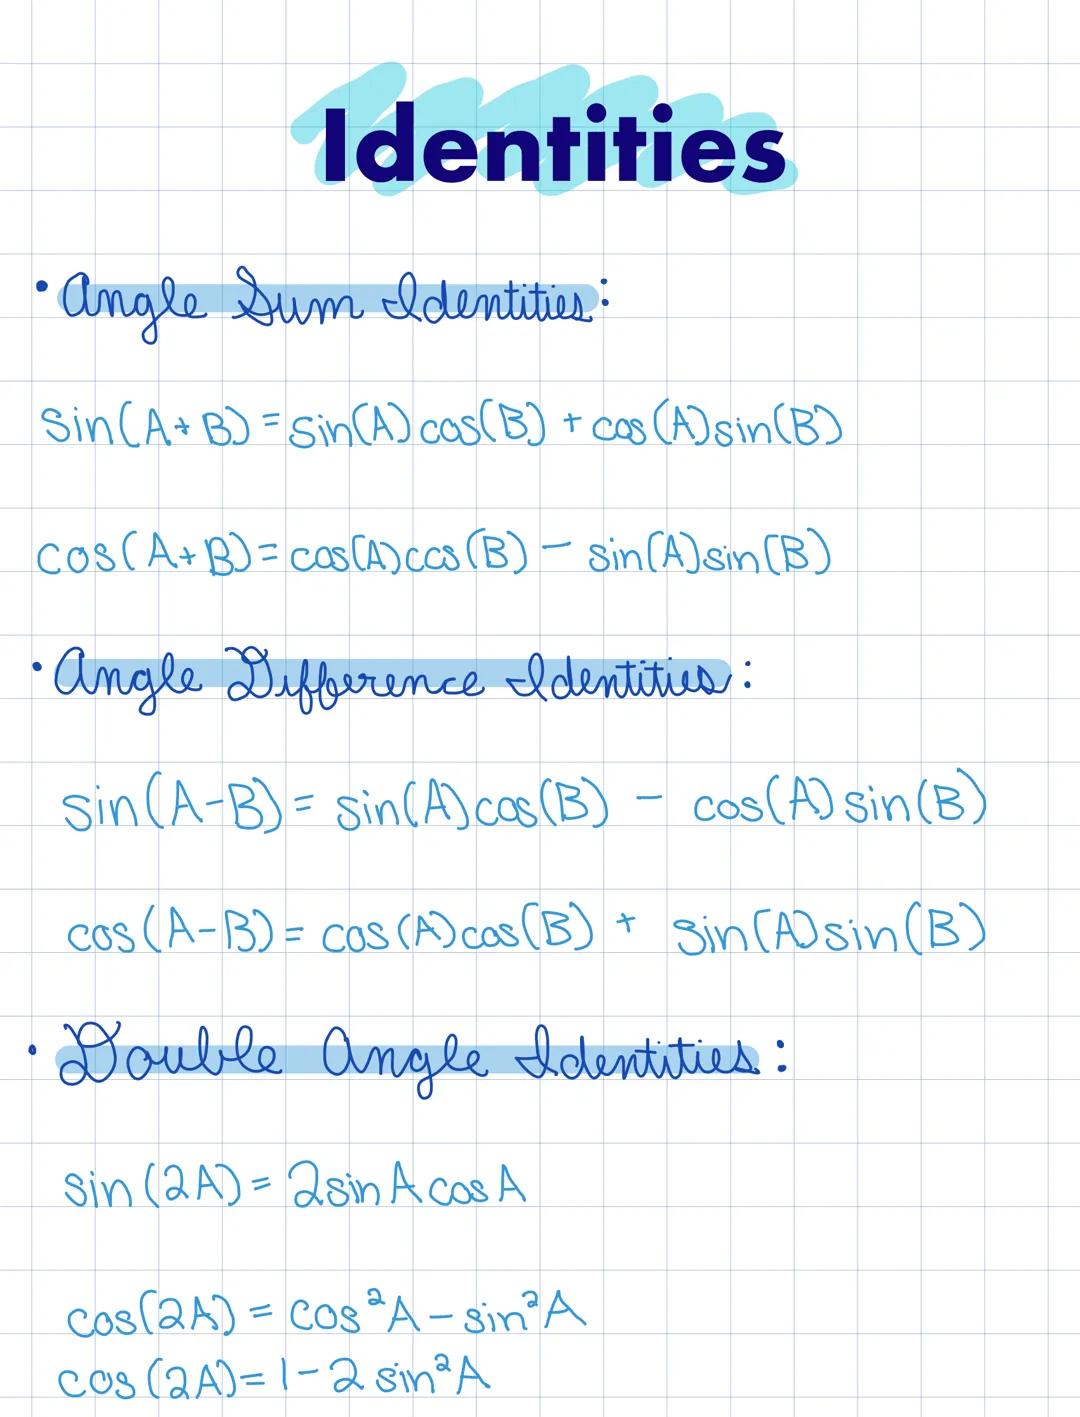 Identities
• Angle Sum Identities:
sin(A+B) = sin(A) cos(B) + cos(A)sin(B)
cos(A+B) = cos(A)cos(B) - sin(A)sin(B)
• Angle Difference Identities:
sin(A-B) = sin(A)cos(B) - cos(A) sin(B)
cos(A-B) = cos(A)cos(B) + sin(A)sin(B)
• Double Angle Identities:
sin(2A) = 2sinA cosA
cos(2A) = cos²A - sin²A
cos(2A) = 1 - 2 sin²A